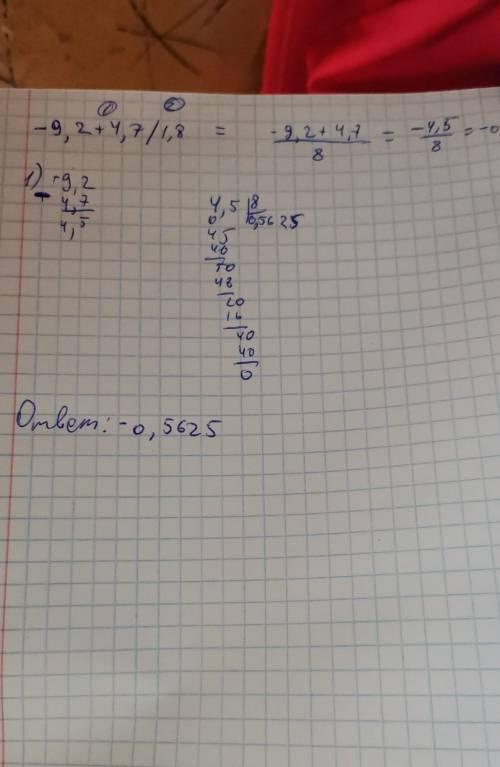 ① ②
-9,2+4,7/1,8 = -9,2+4,7/8 = -4,5/8 = -0
1) -9,2
4,7
4,5
4,5 | 8
0 0,5625
45
40
50
48
20
16
40
40
0
Ответ: -0,5625